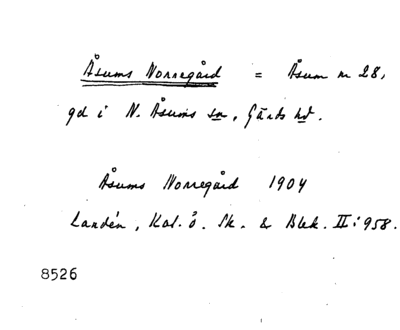 Åsums Norregård = Åsum nr 28,
gd i N. Åsums sn, Gärds hd.
Åsums Norregård 1904
Landén, Kat. ö. Sk. & Blek. II:958.
8526